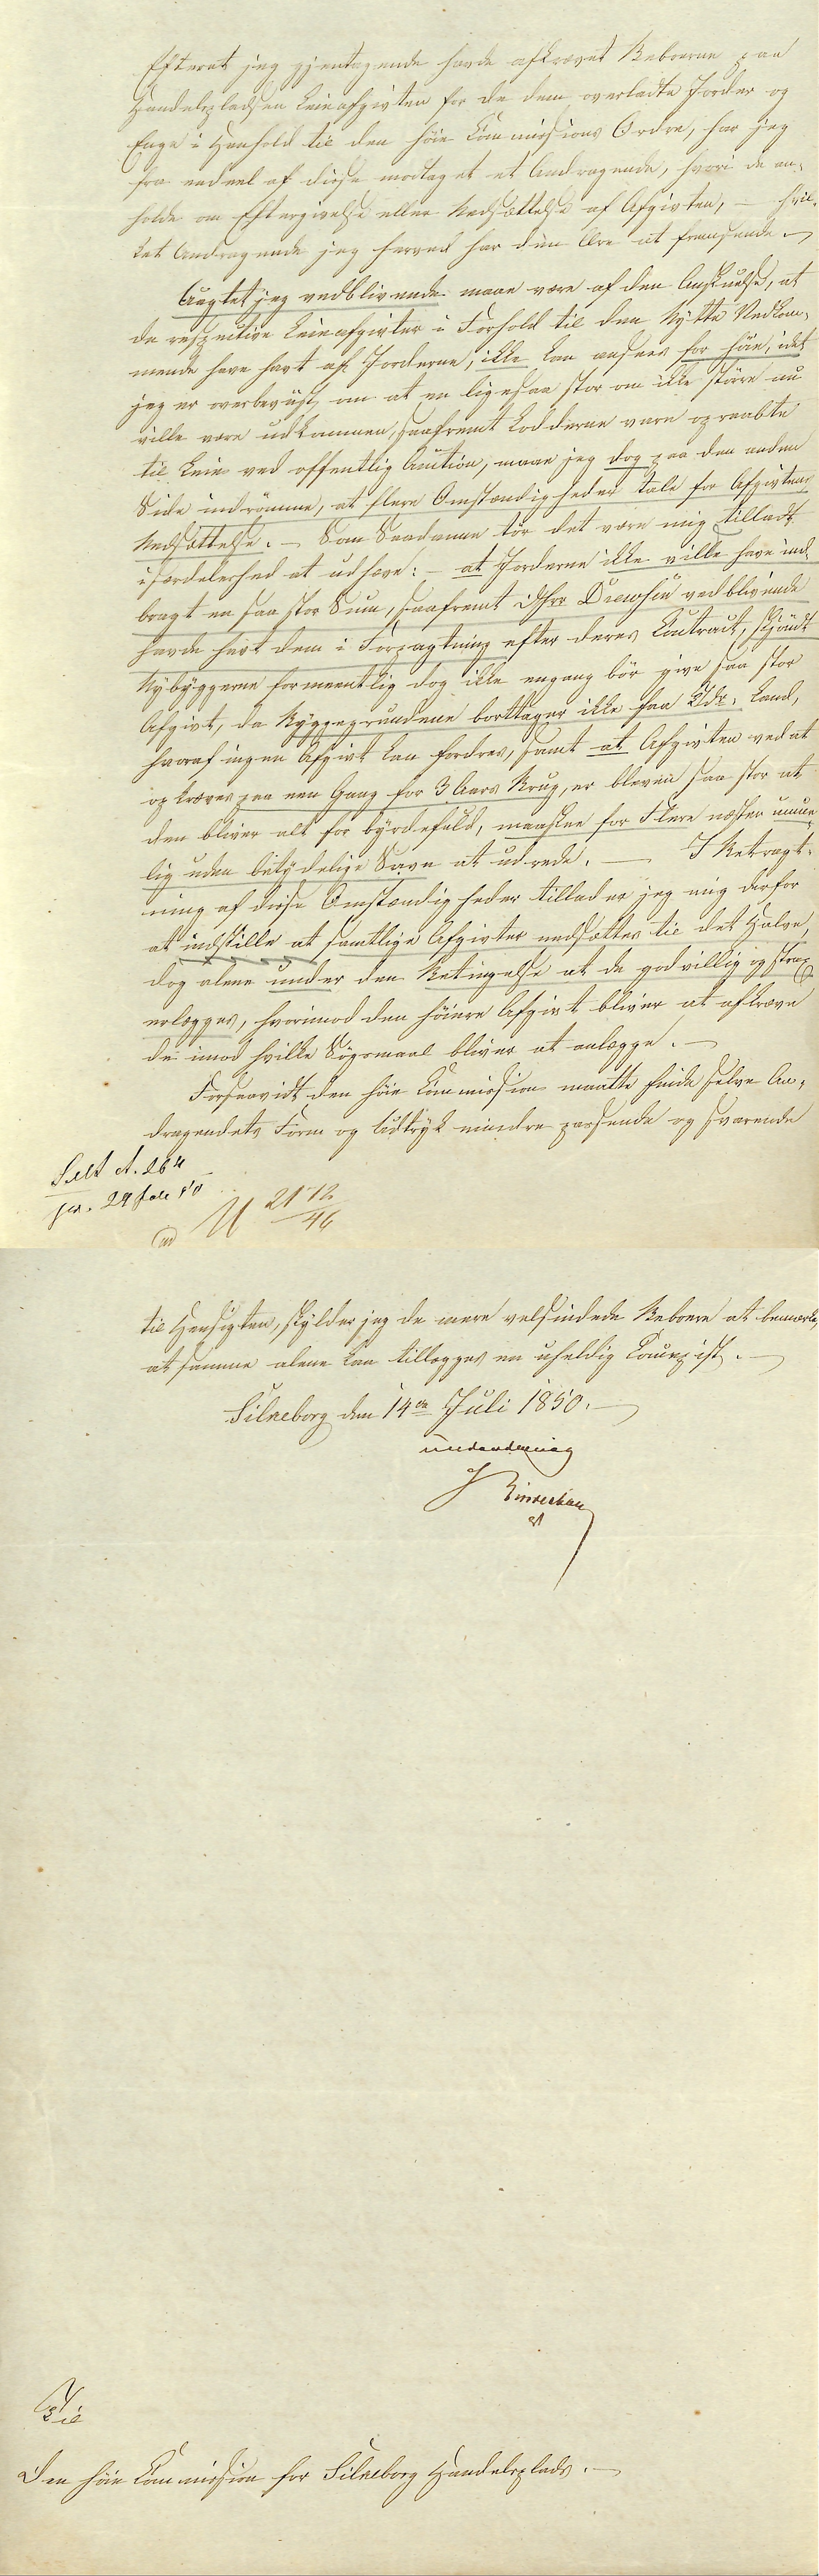 Efterat jeg gjentagende havde afkrævet Beboerne paa
Handelspladsen Leieafgivten for de dem overladte Jorder og
Enge i Henhold til den høie Commissions Ordre, har jeg
fra endeel af disse modtaget et Andragende, hvori de an-
holde om Eftergivelse eller Nedsættelse af Afgivten, – hvil-
ket Andragende jeg herved har den Ære at fremsende. –
Uagtet jeg vedblivende maae være af den Anskuelse, at
de respective Leieafgivter i Forhold til den Nytte Vedkom-
mende have havt af Jorderne, ikke kan ansees for høie, idet
jeg er overbeviist om at en ligesaa stor om ikke større nu
ville være udkommen, saafremt Lodderne vare opraabte
til Leie ved offentlig Auction, maae jeg dog paa den anden
Side indrømme, at flere Omstændigheder tale for Afgivtens
Nedsættelse. – Som Saadanne tør det være mig tilladt
isærdeleshed at udhæve: – at Jorderne ikke ville have ind-
bragt en saa stor Sum, saafremt Hrr Drewsen vedblivende
havde havt dem i Forpagtning efter deres Contract, skjøndt
Nybyggerne formeentlig dog ikke engang bør give saa stor
Afgivt, da Byggegrundene borttager ikke faa Tdr. Land,
hvoraf ingen Afgivt kan fordres, samt at Afgivten ved at
opkræves paa een Gang for 3 Aars Brug, er bleven saa stor at
den bliver alt for byrdefuld, maaskee for Flere næsten umue-
lig uden betydelige Savn at udrede. – I Betragt-
ning af disse Omstændigheder tillader jeg mig derfor
at indstille at samtlige Afgivter nedsættes til det Halve,
dog alene under den Betingelse at de godvillig og strax
erlægges, hvorimod den høiere Afgivt bliver at afkræve
de imod hvilke Søgsmaal bliver at anlægge. –
Forsaavidt den høie Commission maatte finde selve An-
dragendets Form og Udtryk mindre passende og svarende
264
29
ad
2112
46
til Hensigten, skylder jeg de mere velsindede Beboere at bemærke,
at samme alene kan tillægges en uheldig Concipist. –
Silkeborg den 14de Juli 1850. –
underdanig
Bindesbøll
Til
Den høie Commission for Silkeborg Handelsplads. –